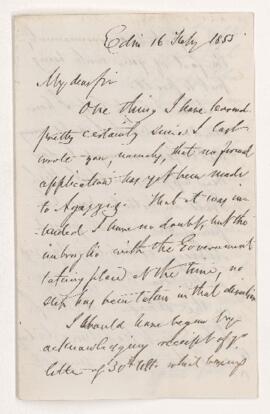 Edin 16 July 1855
My dear Sir
One thing I have learned
pretty certainly since I last
wrote you, namely, that no formal
application has yet been made
to Agassiz. That it was in-
tended I have no doubt, but the
imbroglio with the Government
taking place at the time, no
step has been taken in that direction
I should have begun by
acknowledging receipt of yr
letter of 30th Ulto. which